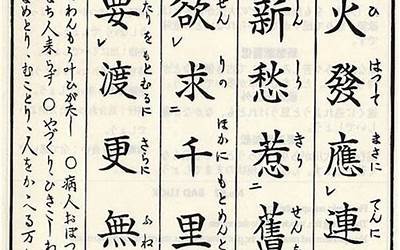 ひ はつして まさに てんに
火發應レ連
しん しう きう せん
新愁惹二舊
せん りの ほかに もとめんと
欲レ求二千里
たりをもとむるに さらに ふね
要渡更無
わんもう叶ひがたし ○病人おぼつ
ち人来らず○やづくり、ひきこしわ
めとり、むことり、人をかゝへる万